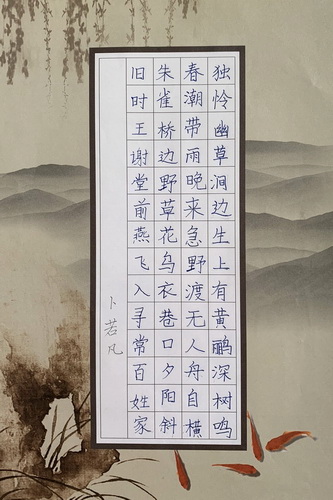 独怜幽草涧边生上有黄鹂深树鸣
春潮带雨晚来急野渡无人舟自横
朱雀桥边野草花乌衣巷口夕阳斜
旧时王谢堂前燕飞入寻常百姓家
卜若凡